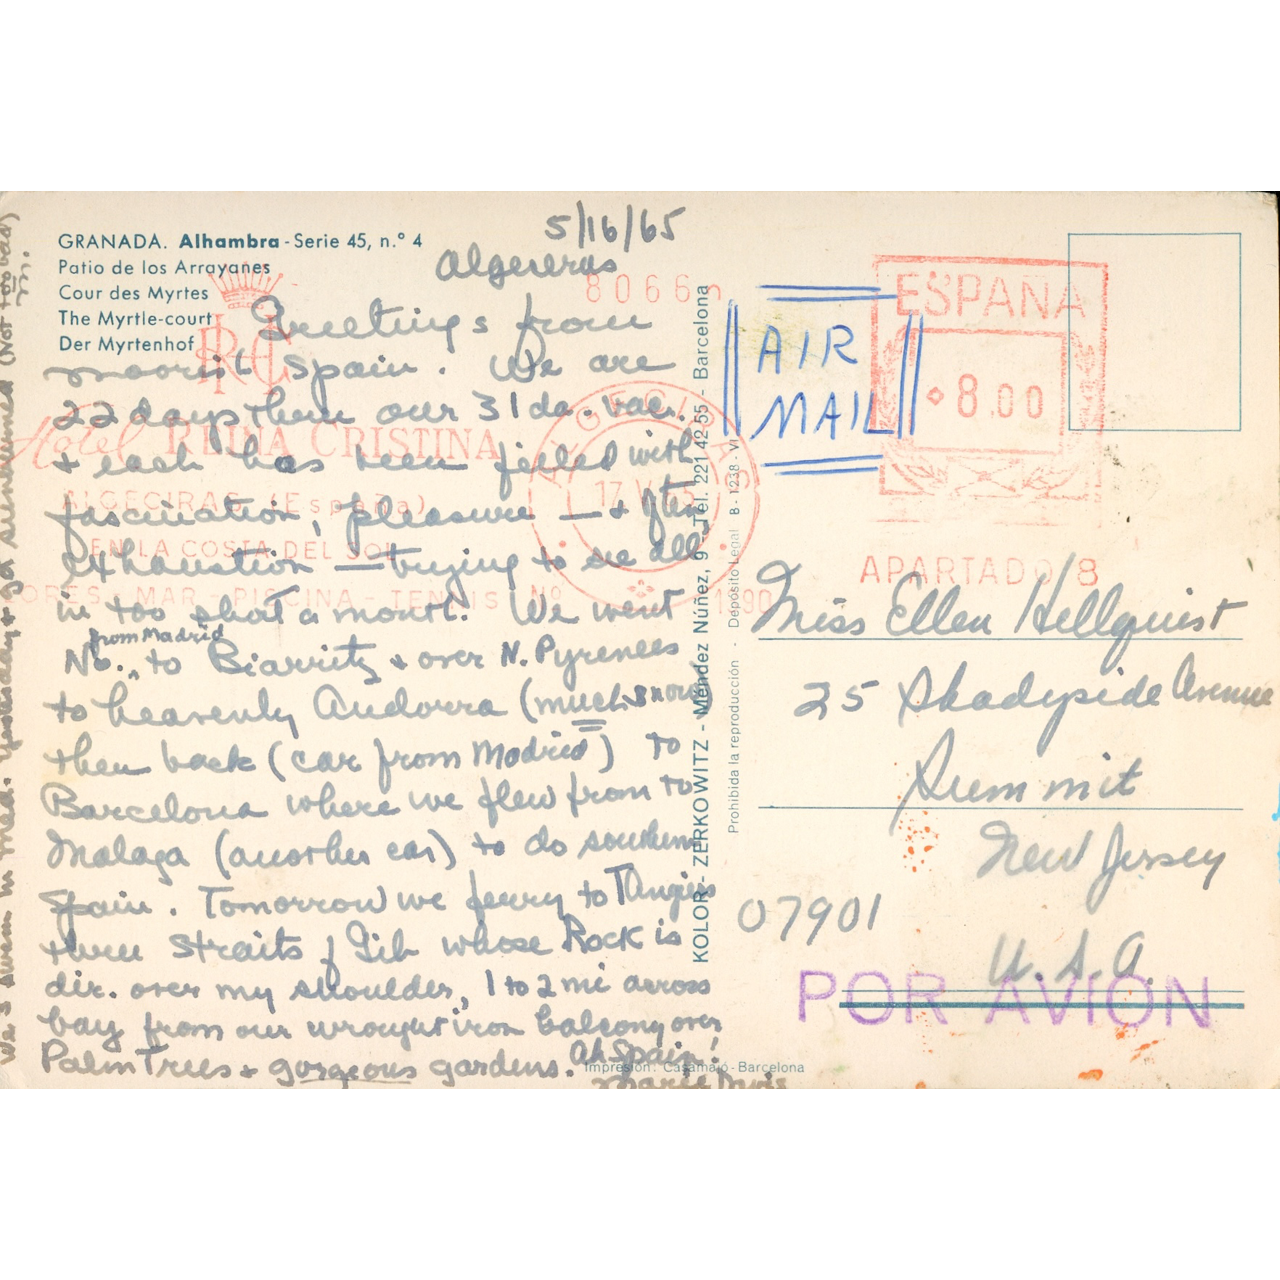 GRANADA. Alhambra - Serie 45, n.º 4
Patio de los Arrayanes
Cour des Myrtes
The Myrtle-court
Der Myrtenhof
5/16/65
Algeceras
Greetings from
moorish Spain. We are
22 days thru our 31 da. vac.
+ each has been filled with
fascination, pleasure — + often
exhaustion — trying to see all
in too short a month. We went
No. from Madrid to Biarritz + over N. Pyrenees
to heavenly Andorra (much snow)
then back (car from Madrid) to
Barcelona where we flew from to
Malaga (another car) to do southern
Spain. Tomorrow we ferry to Tangiers
thru Straits of Gib whose Rock is
dir. over my shoulder, 1 to 2 mi across
bay from our wrought iron balcony over
Palm Trees + gorgeous gardens. Ah Spain!
Marie
We swam in Med. yesterday + got sunburned (Not too bad)
Hotel REINA CRISTINA
ALGECIRAS (España)
EN LA COSTA DEL SOL
MAR - PISCINA - TENNIS
Nº 1890
8066
ALGECIRAS
17 V 65
ESPAÑA
8.00
APARTADO 8
AIR
MAIL
KOLOR - ZERKOWITZ - Méndez Núñez, 9 - Tel. 221 42 55 - Barcelona
Prohibida la reproducción - Depósito Legal B - 1238 - VI
Miss Ellen Hellquist
25 Shadyside Avenue
Summit
New Jersey
07901
U.S.A.
POR AVION
Impresión: Casamajó - Barcelona